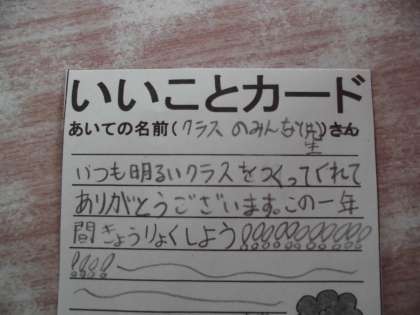 いいことカード
あいての名前(クラスのみんな(先生))さん
いつも明るいクラスをつくってくれて
ありがとうございます。この一年
間きょうりょくしよう!!!!!!!!!!
!!!!